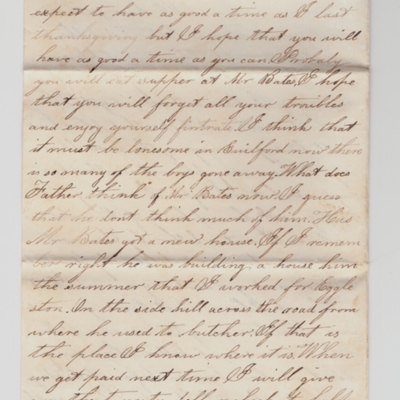 expect to have as good a time as I last
thanksgiving but I hope that you will
have as good a time as you can Probaly
you will eat supper at Mr Bates, I hope
that you will forget all your troubles
and enjoy yourself I think that
it must be lonesome in Guilford now there
is so many of the boys gone away. What does
Father think of Mr Bates now. I guess
that he dont think much of him. Has
Mr Bates got a new house. If I remem
ber right he was building a house him
the summer that I worked for Eggle
ston. On the side hill across the road from
where he used to butcher. If that is
the place I know where it is. When
we get paid next time I will give